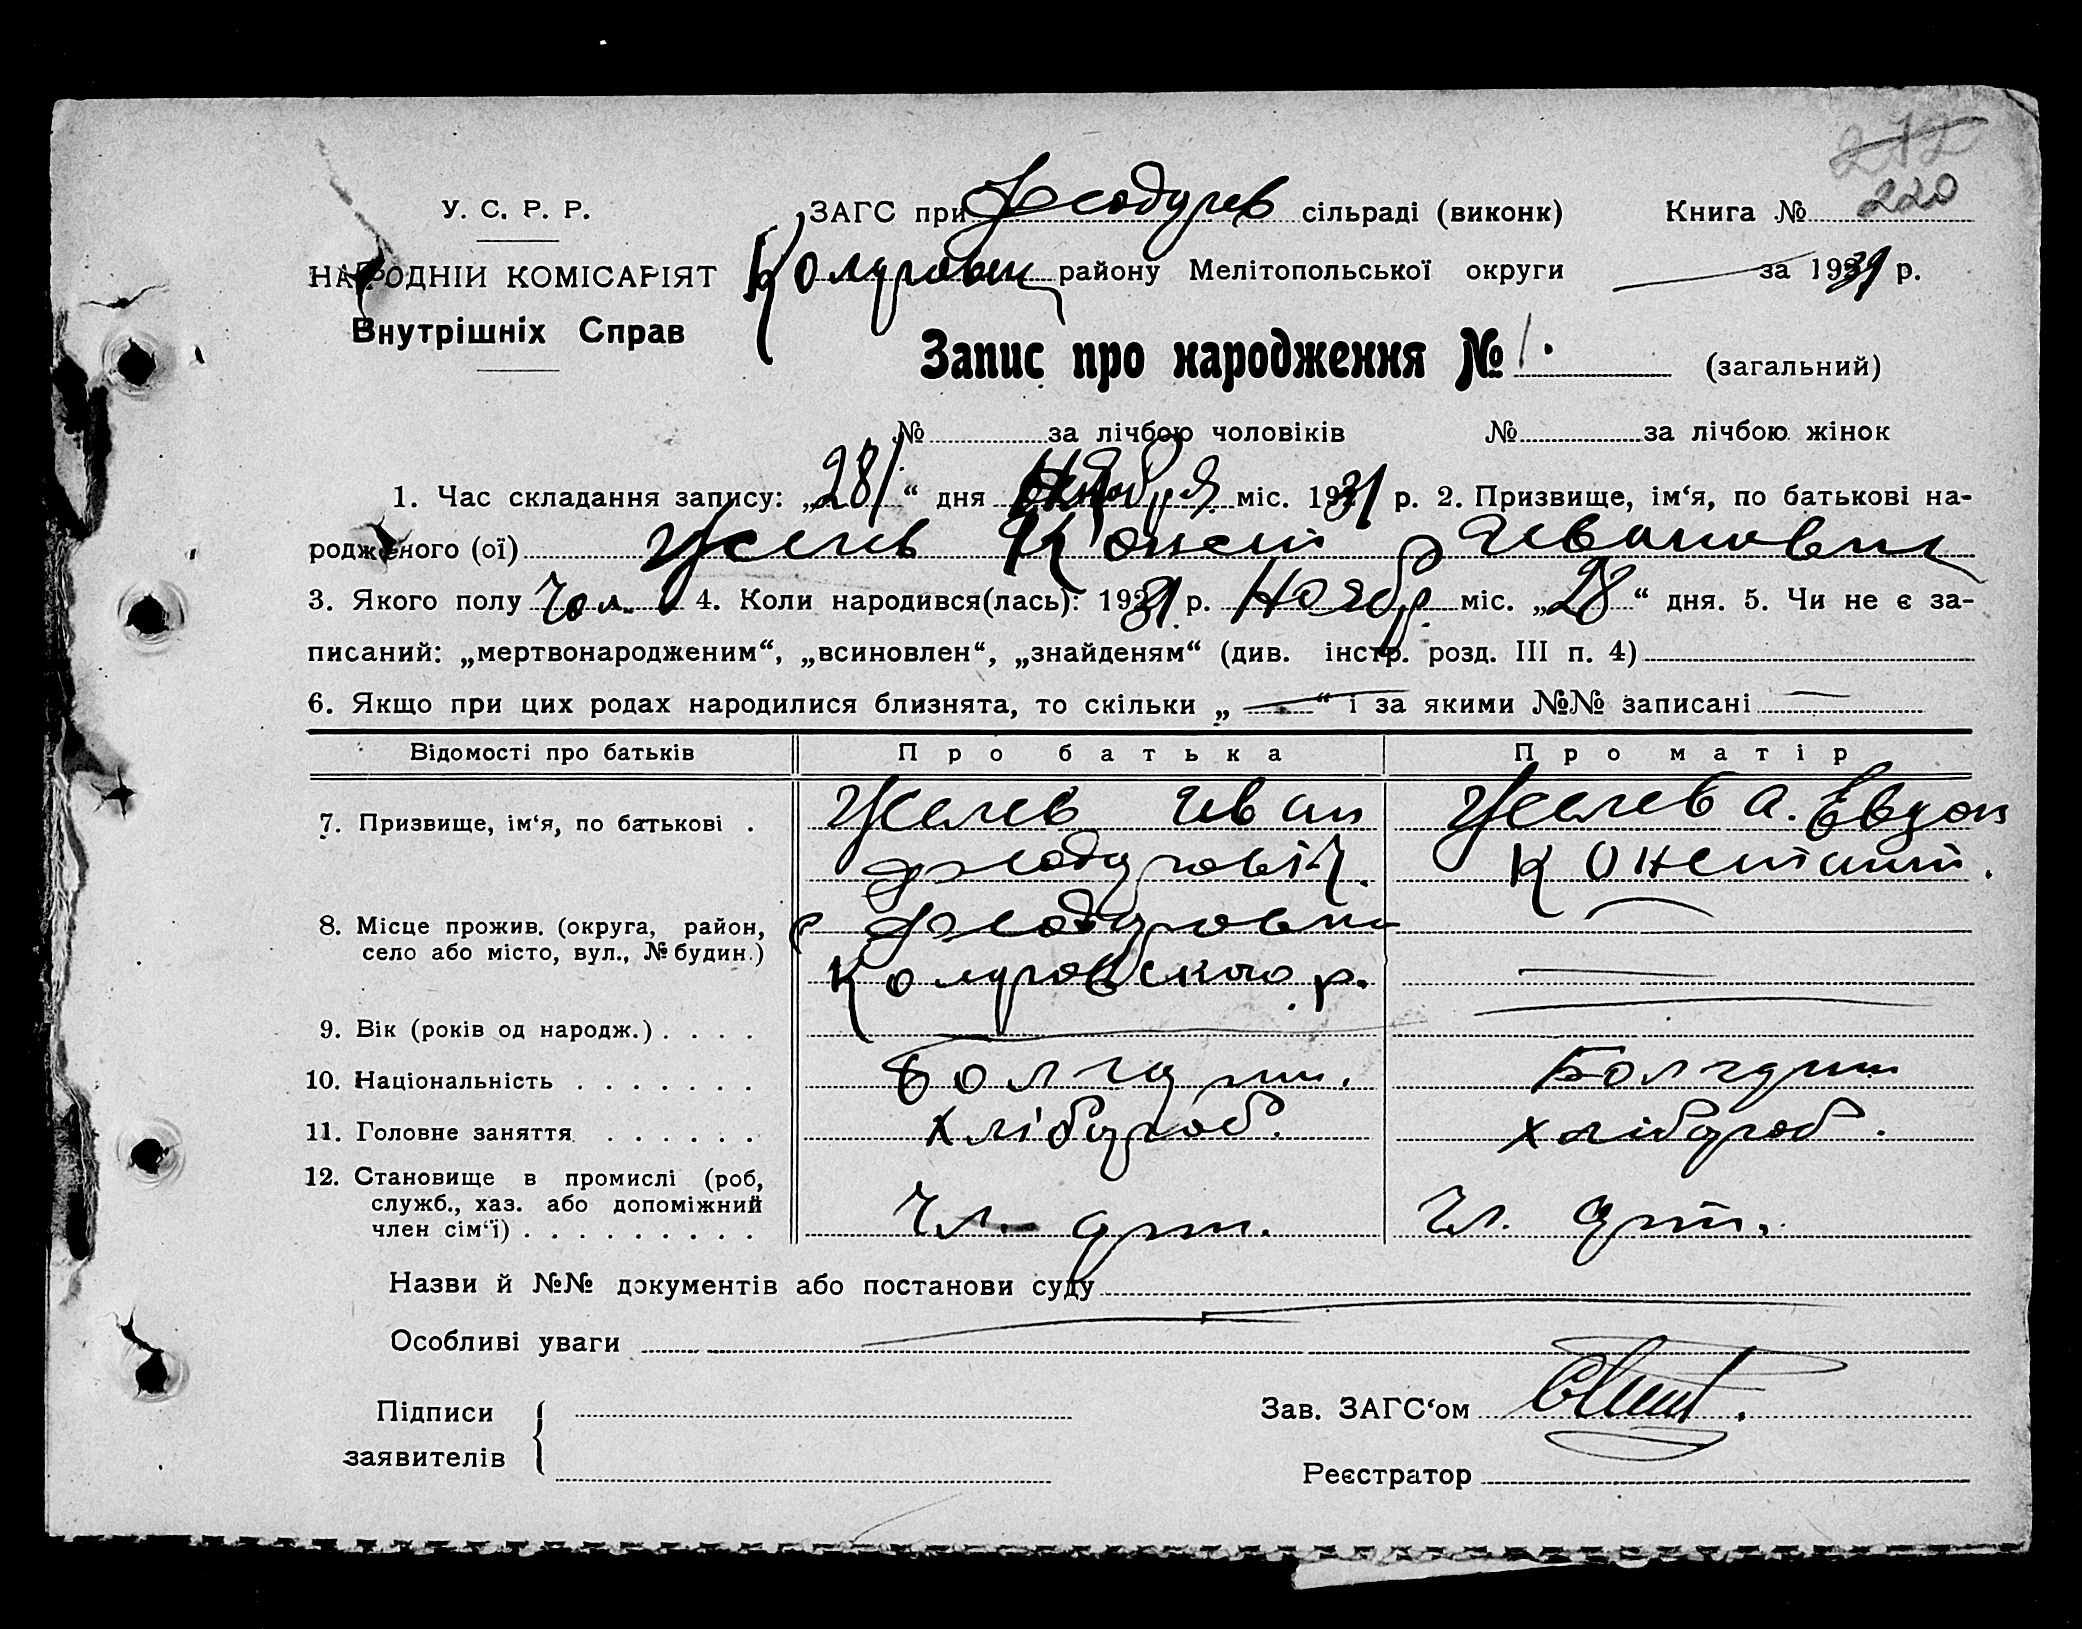 212
220
У. С. Р. Р.
ЗАГС при Феодуров сільраді (виконк)
Книга №
НАРОДНІЙ КОМІСАРІЯТ
району Мелітопольської округи
за 1931 р.
Внутрішніх Справ
Запис про народження № 1. (загальний)
№ за лічбою чоловіків № за лічбою жінок
1. Час складання запису: „28/“ дня міс. 1931 р. 2. Призвище, ім‘я, по батькові на-
родженого (ої) Желев Конст Иванович
3. Якого полу Чол. 4. Коли народився(лась): 1931 р.Ноябр. міс. „28“ дня. 5. Чи не є за-
писаний: „мертвонародженим“, „всиновлен“, „знайденям“ (див. інстр. розд. III п. 4)
6. Якщо при цих родах народилися близнята, то скільки „ “ і за якими №№ записані
Відомості про батьків Про батька Про матір
7. Призвище, ім‘я, по батькові . Желев Иван Желева. Евдок
Конст
8. Місце прожив. (округа, район,
село або місто, вул., № будин.)
9. Вік (років од народж.) . . . .
10. Національність . . . . . . . Болгарин. Болгарин
11. Головне заняття . . . . . . хлібороб. хлібороб.
12. Становище в промислі (роб,
служб., хаз. або допоміжний
член сім‘ї) . . . . . . . . . Чл. арт. Чл. арт.
Назви й №№ документів або постанови суду
Особливі уваги
Підписи
заявителів
Зав. ЗАГС‘ом
Реєстратор